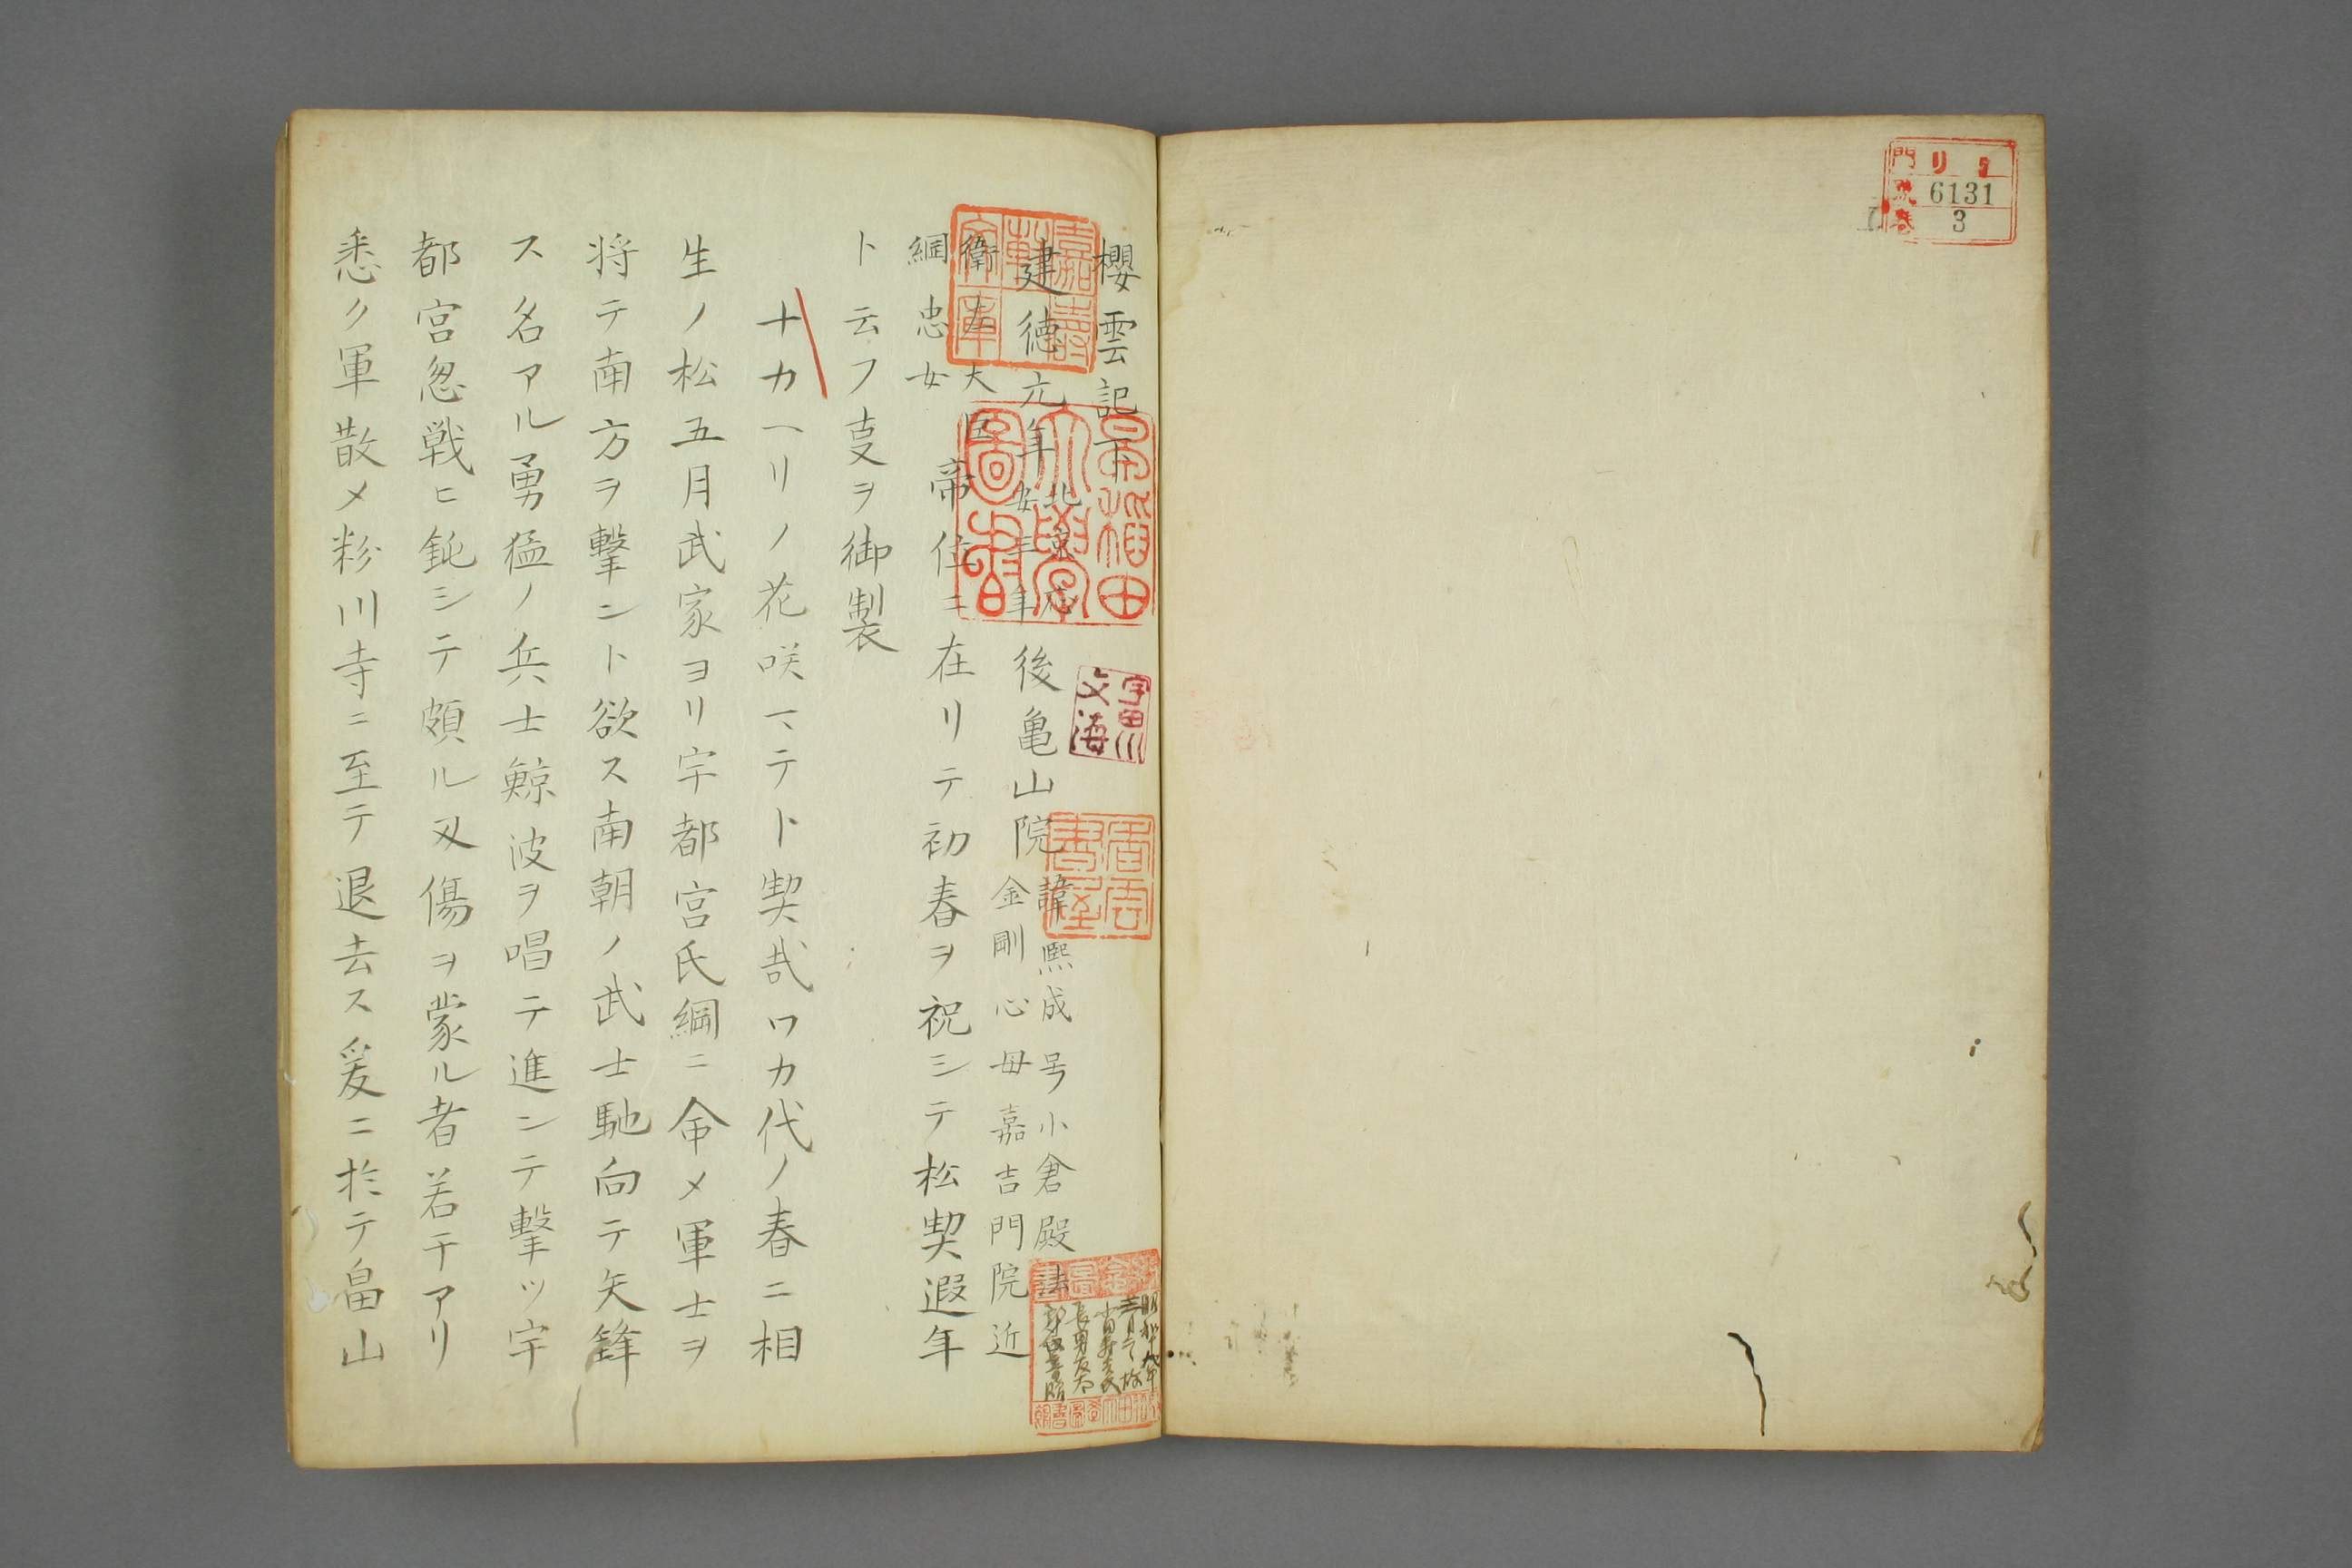 門 リ 5
號 6131
巻 3
櫻雲記下
建徳元年 北京応安三年 後亀山院 諱熙成号小倉殿法
金剛心母嘉吉門院近
衛左大臣
綱忠女
帝位ニ在リテ初春ヲ祝シテ松契遐年
ト云フ支ヲ御製
十カヘリノ花咲マテト契哉ワカ代ノ春ニ相
生ノ松五月武家ヨリ宇都宮氏綱ニ命メ軍士ヲ
将テ南方ヲ撃ント欲ス南朝ノ武士馳向テ矢鋒
ス名アル勇猛ノ兵士鯨波ヲ唱テ進ンテ撃ツ宇
都宮忽戦ヒ鈍シテ頗ル刄傷ヲ蒙ル者若干アリ
悉ク軍散メ粉川寺ニ至テ退去ス爰ニ於テ畠山
早稲田大學圖書
宇田川文海